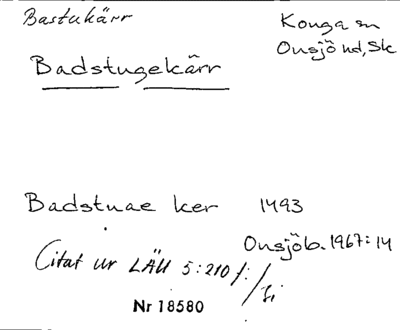 Bastukärr
Konga sn
Onsjö hd, Sk
Badstugekärr
Badstuae ker 1493
Onsjöb. 1967:14
Citat ur LÄU 5:210 f:
Nr 18580